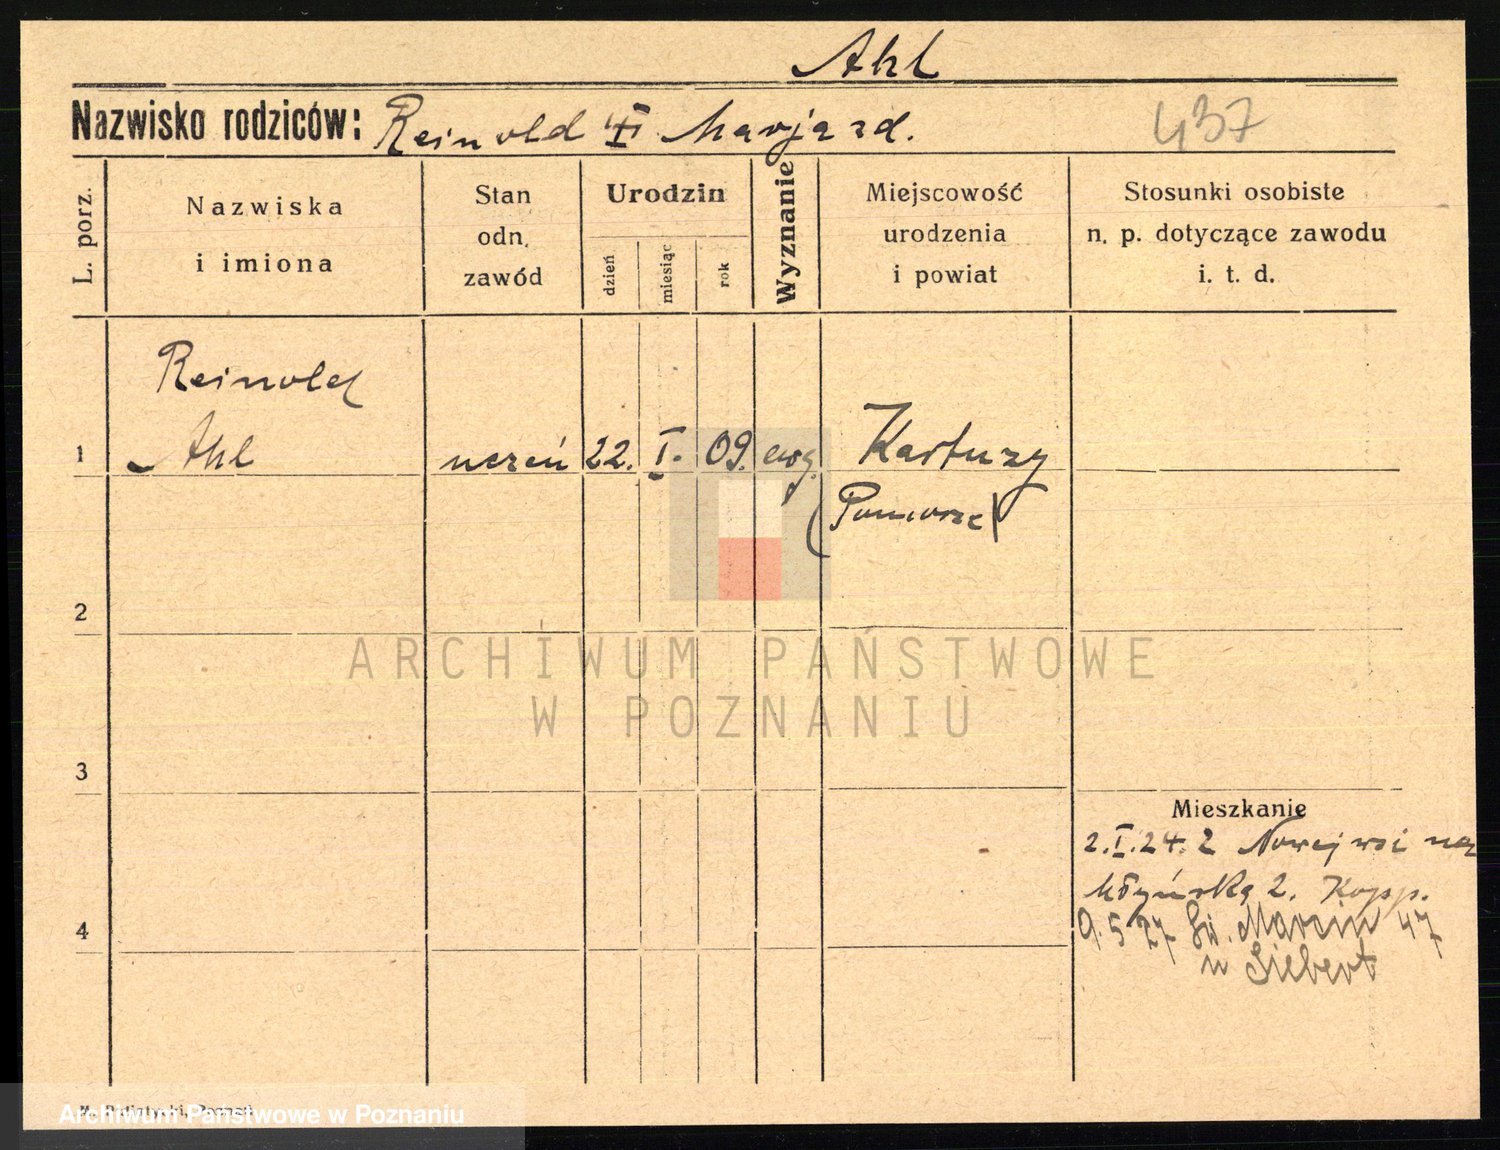 Ahl
Nazwisko rodziców: Reinold
437
L. porz.
Nazwiska
i imiona
Stan
odn.
zawód
Urodzin
dzień
miesiąc
rok
Wyznanie
Miejscowość
urodzenia
i powiat
Stosunki osobiste
n. p. dotyczące zawodu
i. t. d.
Reinold
1 Ahl uczeń 22. I. 09. ewg. Kartuzy
(Pomorze)
2
ARCHIWUM PAŃSTWOWE
W POZNANIU
3
Mieszkanie
2.I.24. z Nowej wsi na
Młyńską 2. Kopp.
4
9.5 27 Św. Marcin 47
u Siebert
Archiwum Państwowe w Poznaniu